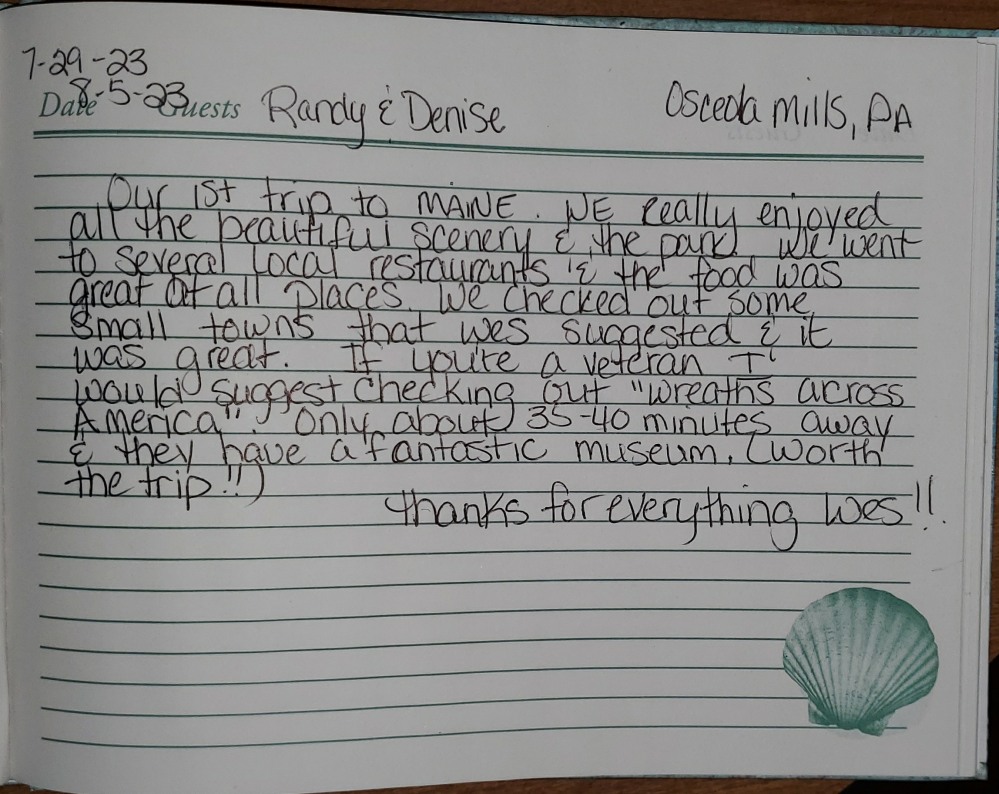 7-29-23
Date 8-5-23 Guests Randy & Denise Osceola Mills, PA
Our 1st trip to MAINE. WE really enjoyed
all the beautiful scenery & the park. We went
to several local restaurants & the food was
great at all places. We checked out some
small towns that Wes suggested & it
was great. If you're a veteran I
would suggest checking out "wreaths across
America". Only about 35-40 minutes away
& they have a fantastic museum. (worth
the trip!!)
Thanks for everything Wes!!